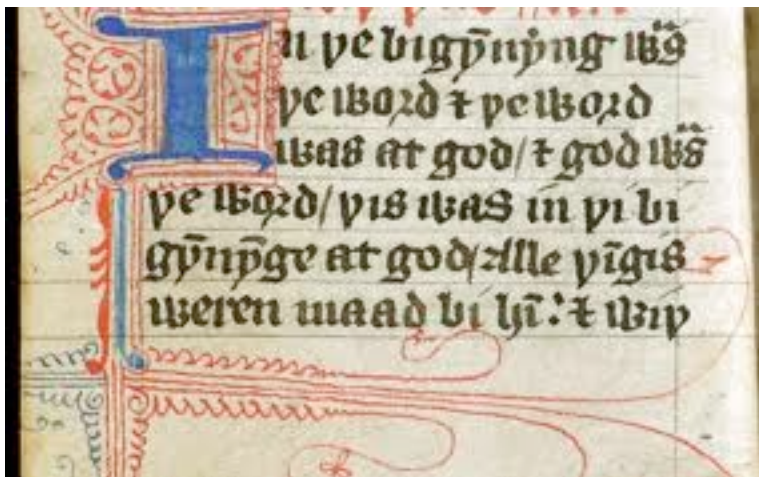 In þe bigyn̄yn̄g wᵃs
þe word ⁊ þe word
was at god/ ⁊ god wᵃs
þe word/ þis was in þi bi
gyn̄yn̄ge at god/ Alle þīgis
weren maad bi hī: ⁊ wiþ